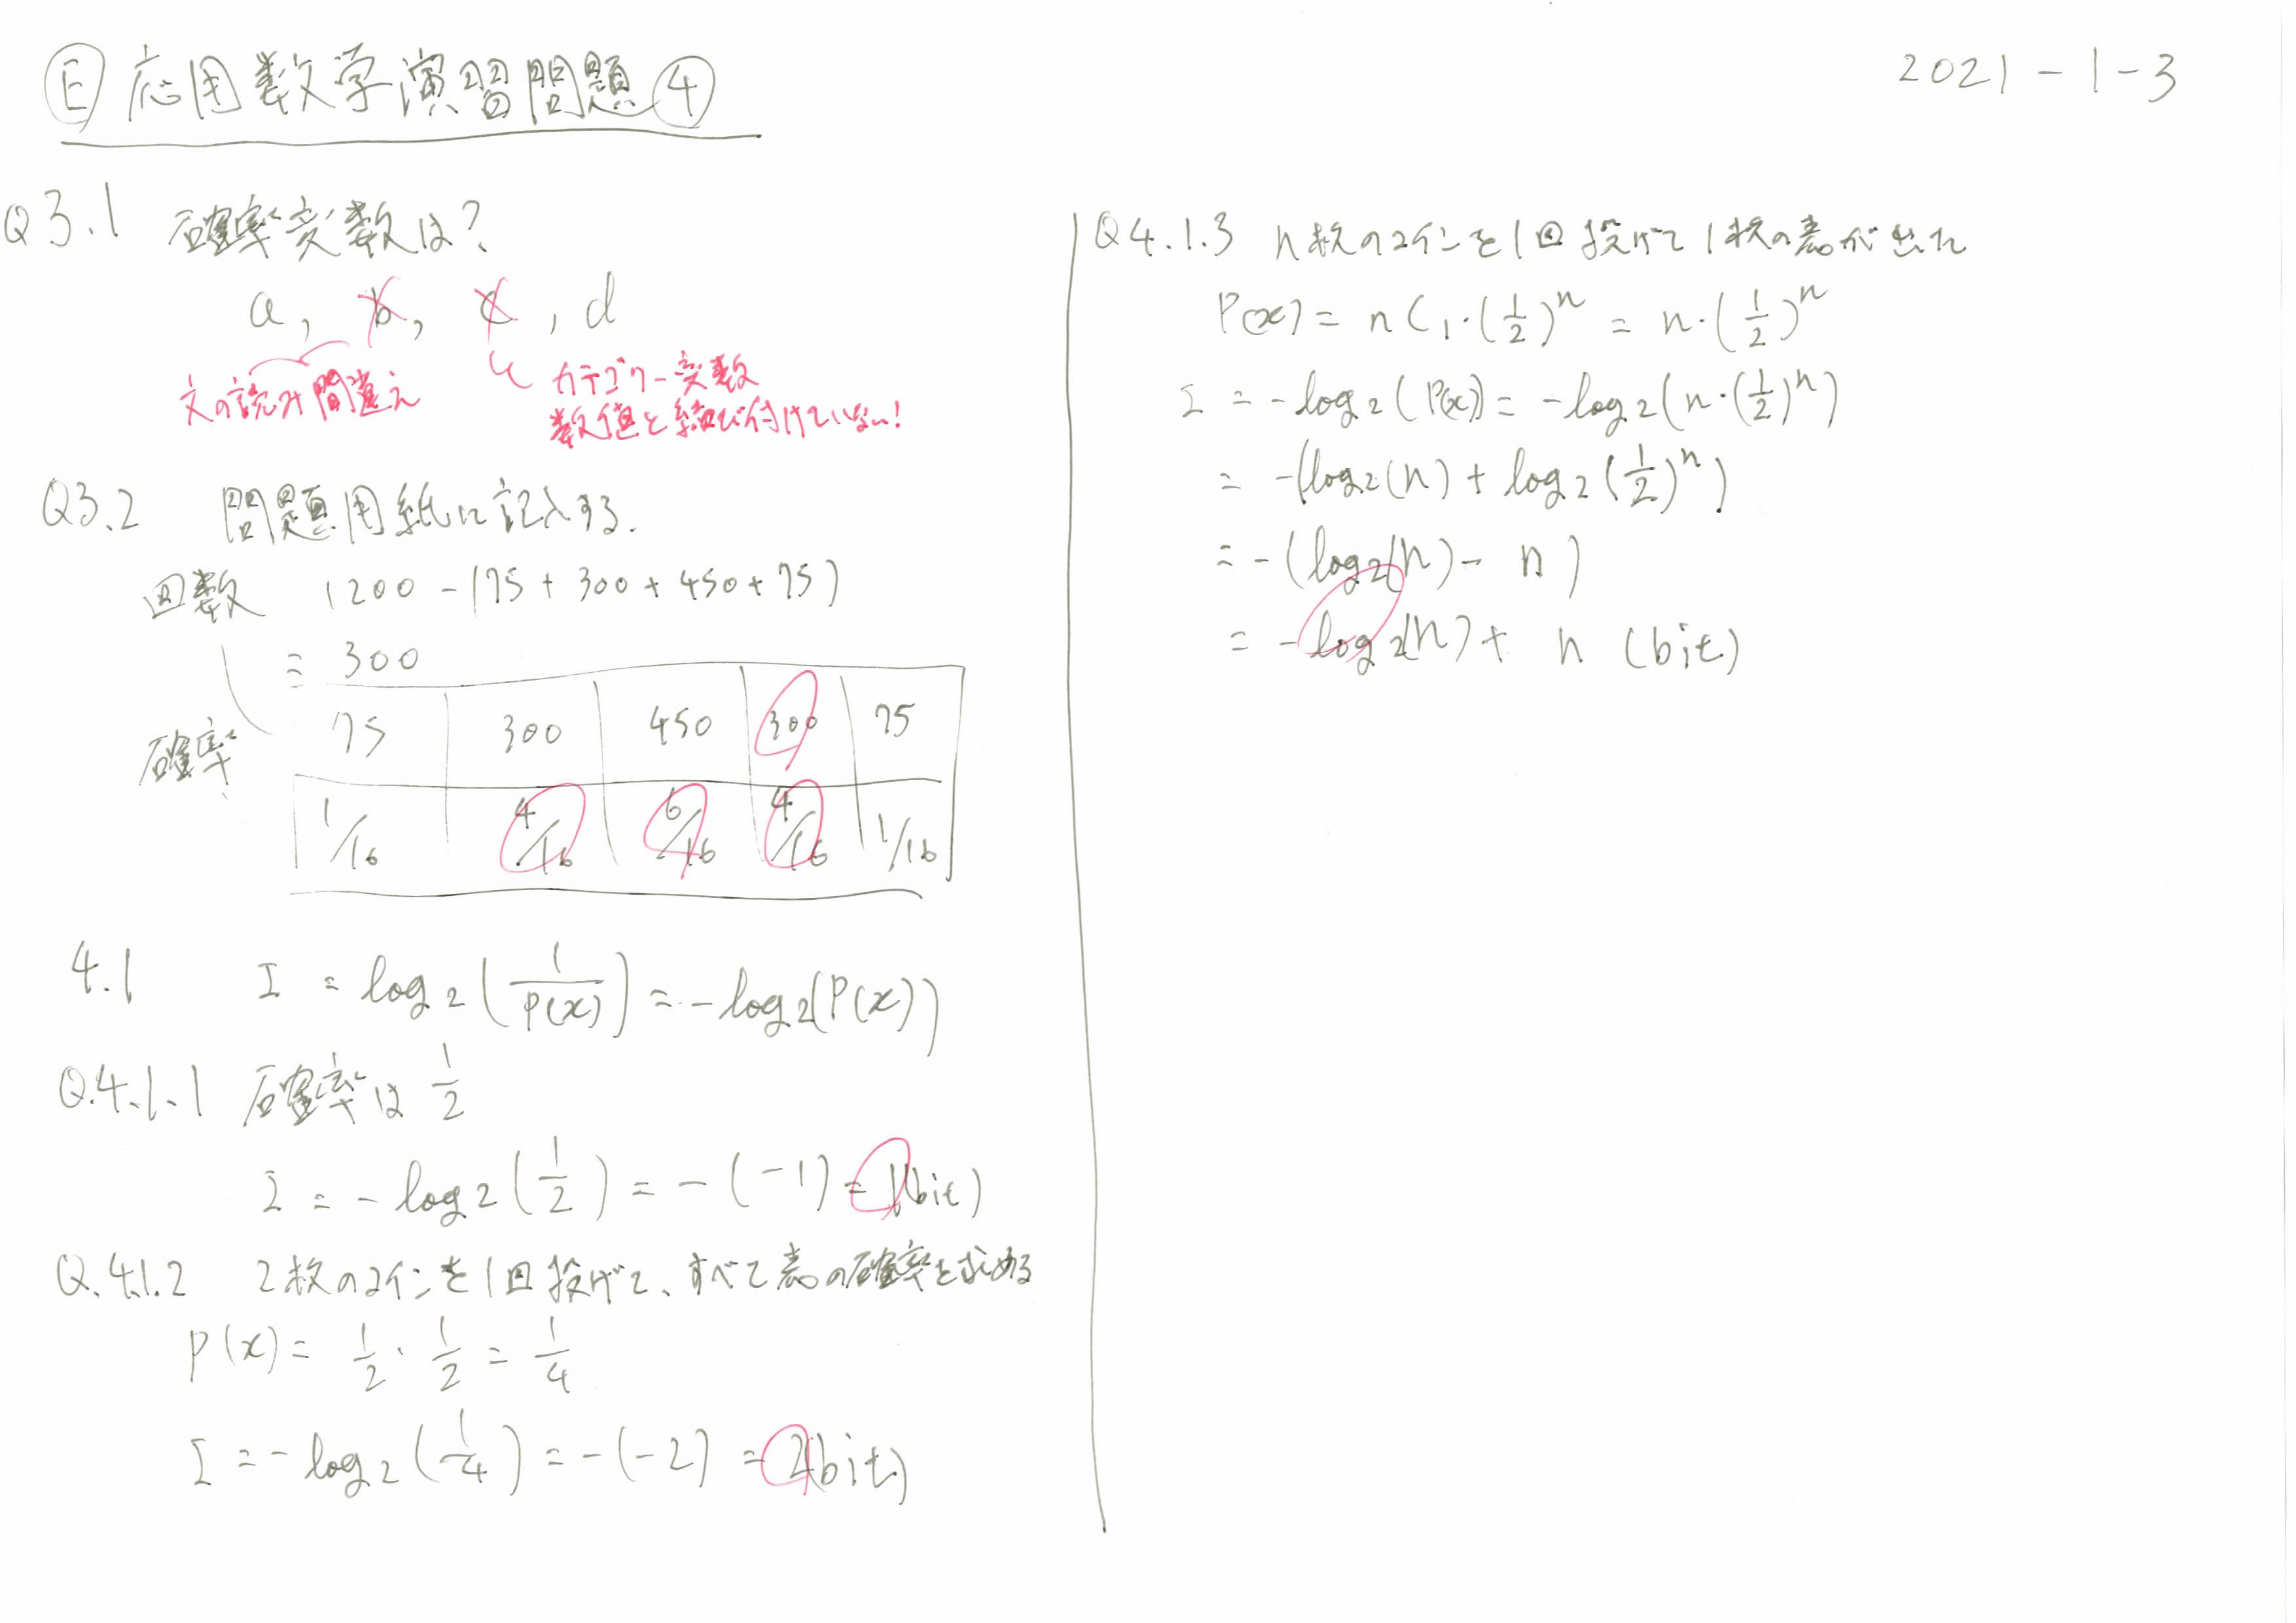 Ⓔ応用数学演習問題④
2021-1-3
Q3.1 確率変数は?
a, b, c, d
文の読み間違え
カテゴリー変数
数値と結び付けていない!
Q3.2 問題用紙に記入する.
回数 1200-(75+300+450+75)
= 300
75 300 450 300 75
確率
1/16 4/16 6/16 4/16 1/16
4.1 I = log2(1/P(x)) = -log2(P(x))
Q.4.1.1 確率は 1/2
I = -log2(1/2) = -(-1) = 1(bit)
Q.4.1.2 2枚のコインを1回投げて、すべて表の確率を求める
P(x) = 1/2・1/2 = 1/4
I = -log2(1/4) = -(-2) = 2(bit)
Q4.1.3 n枚のコインを1回投げて1枚の表が出た
P(x) = nC1・(1/2)^n = n・(1/2)^n
I = -log2(P(x)) = -log2(n・(1/2)^n)
= -(log2(n) + log2(1/2)^n)
= -(log2(n) - n)
= -log2(n) + n (bit)